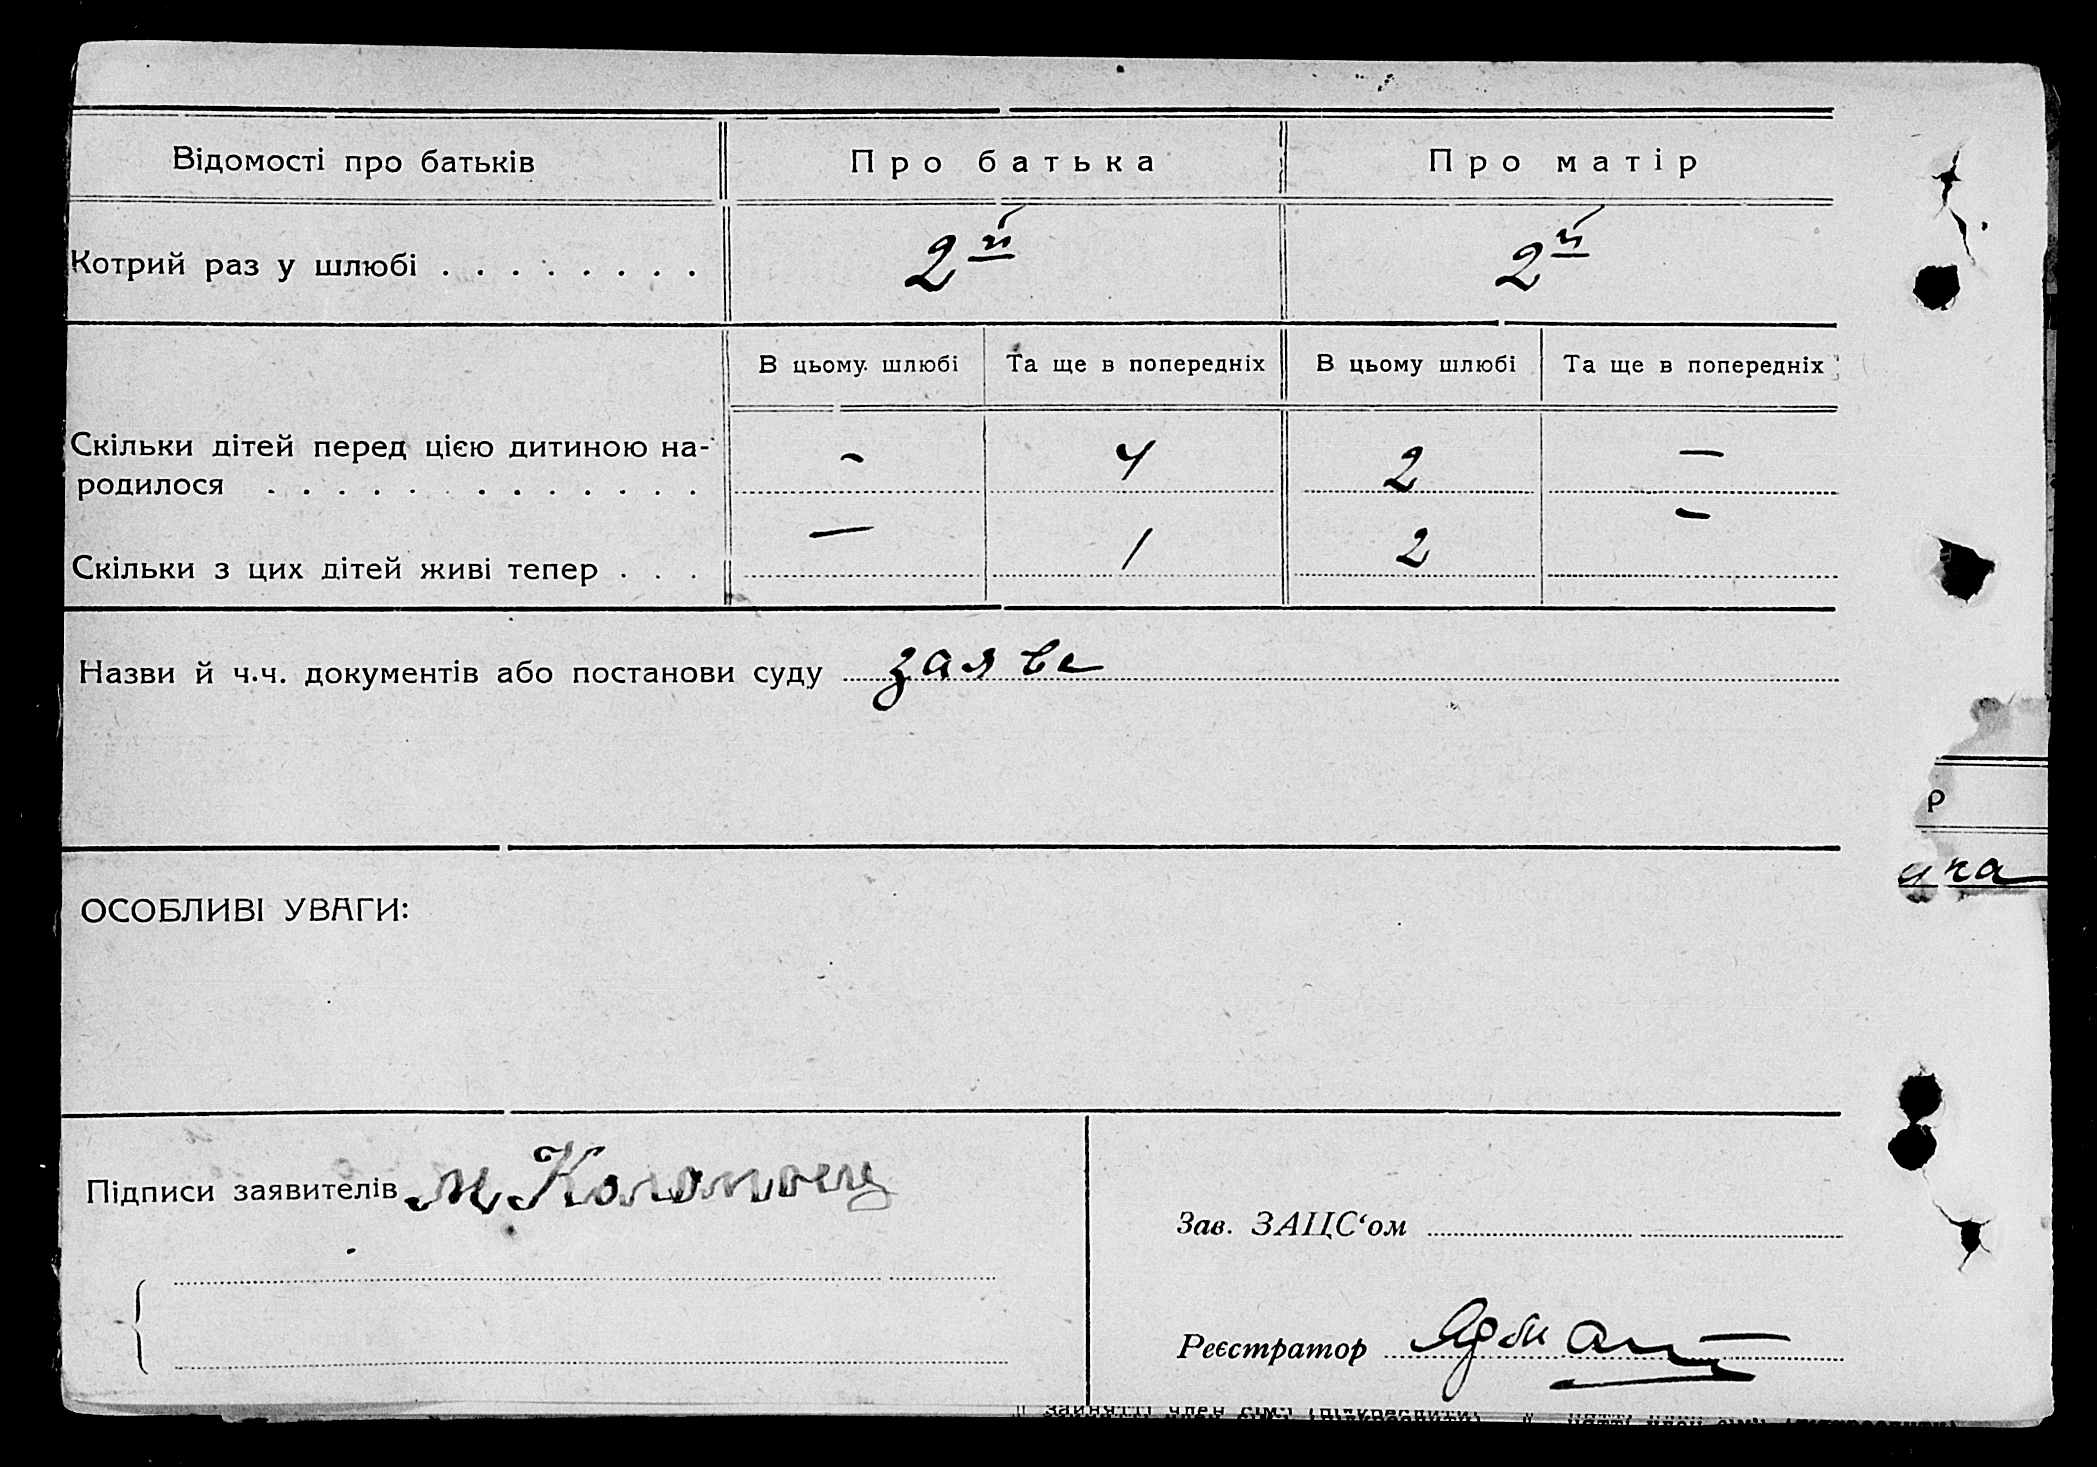 Відомості про батьків Про батька Про матір
Котрий раз у шлюбі . . . . . . . . 2й 2й
В цьому шлюбі Та ще в попередніх В цьому шлюбі Та ще в попередніх
Скільки дітей перед цією дитиною на- - 4 2 —
родилося . . . . . . . . . . . . .
Скільки з цих дітей живі тепер . . . — 1 2 —
Назви й ч.ч. документів або постанови суду заяве
Р
ОСОБЛИВІ УВАГИ:
Підписи заявителів М Коломоец
Зав. ЗАЦС‘ом
Реєстратор